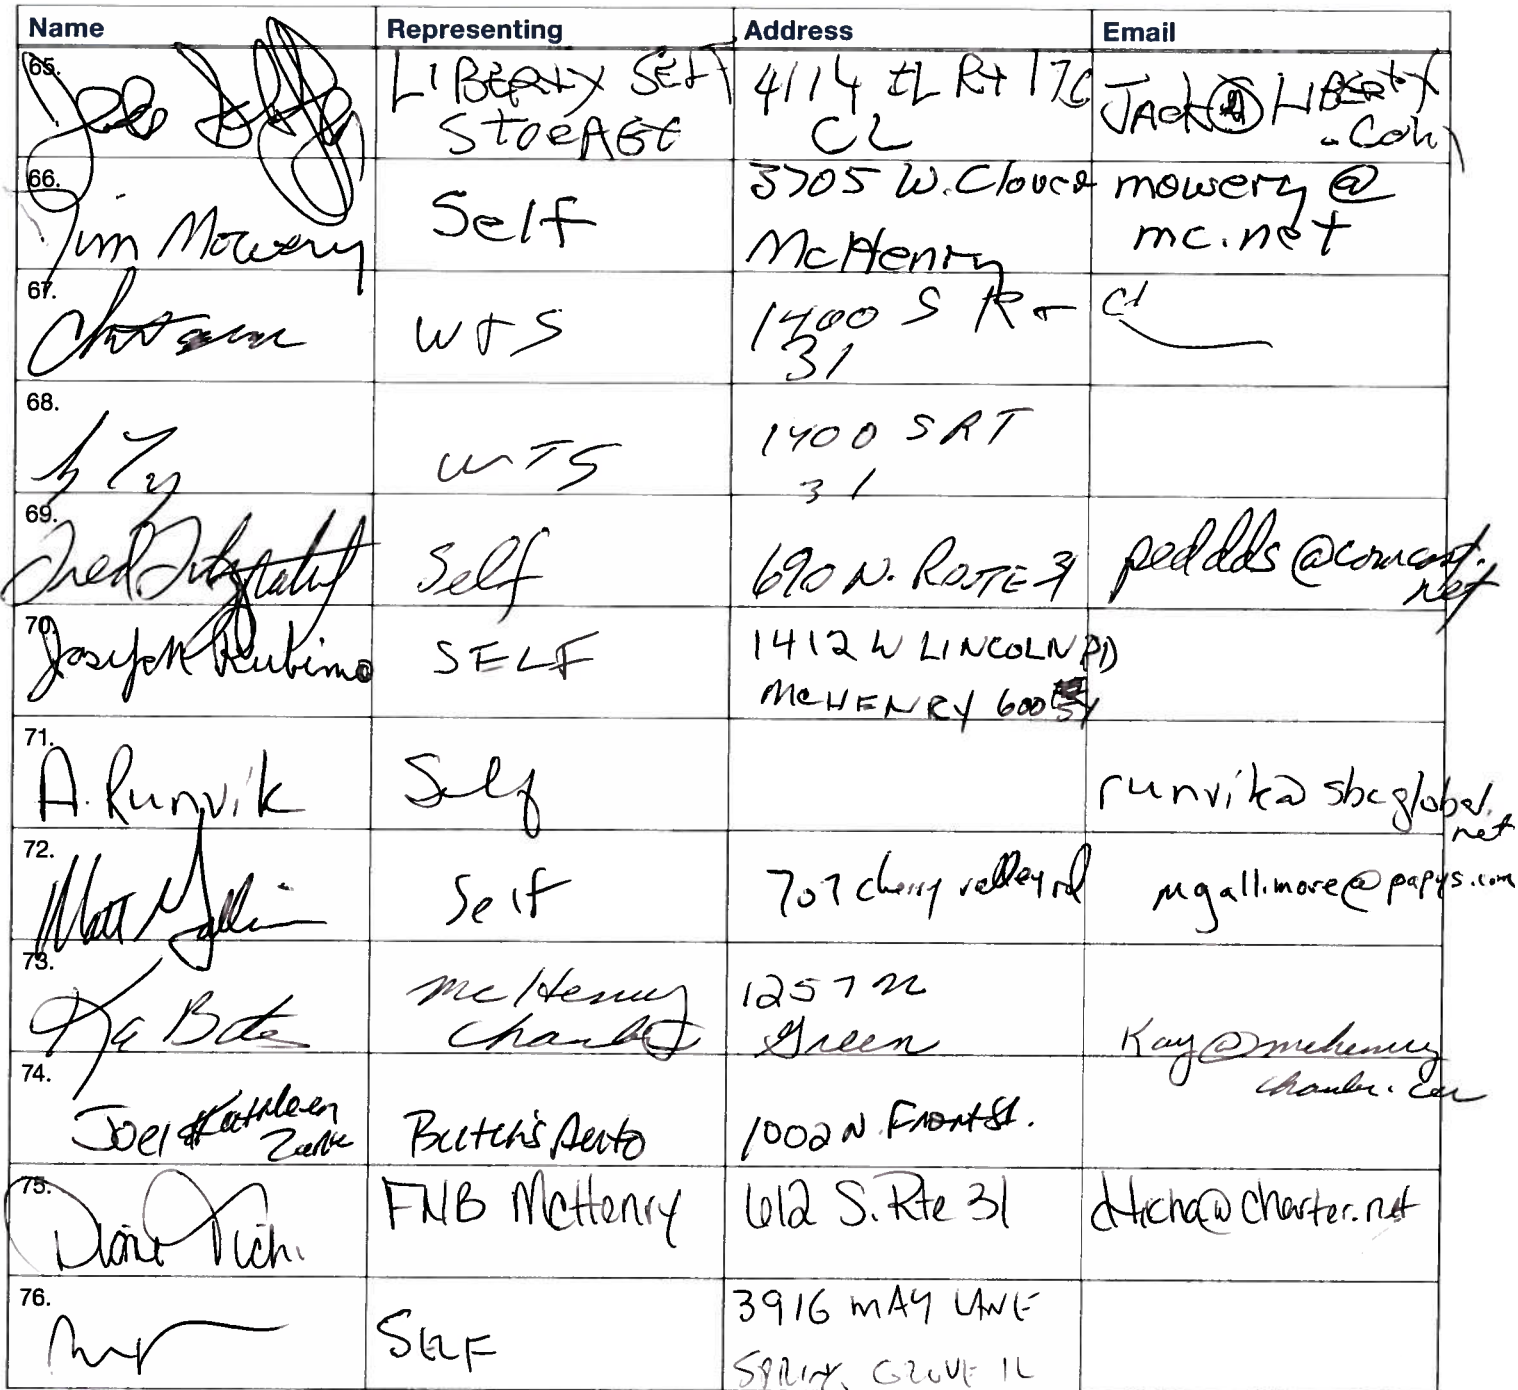 Name Representing Address Email
65. LIBERTY SELF 4114 IL Rt 176 JACK@LIBERTY
STORAGE CL .Com
66. Jim Mowery Self 3705 W. mowery@
McHenry mc.net
67. WTS 1400 S Rt
31
68. WTS 1400 S RT
31
69. Fred Self 690 N. ROUTE 31 peddds@comcast.
net
70. Joseph Rubino SELF 1412 W LINCOLN RD
McHENRY
71. A. Runvik Self runvik@sbcglobal.
net
72. Matt Self 707 cherry valley rd mgallimore@papys.com
73. McHenry 1257 N
Chamber Green Kay@mchenry
chamber.com
74. Joel & Kathleen Butch's Auto 1002 N. Front St.
75. Diane FNB McHenry 612 S. Rte 31 dticha@charter.net
76. SELF 3916 MAY LANE
SPRING GROVE IL